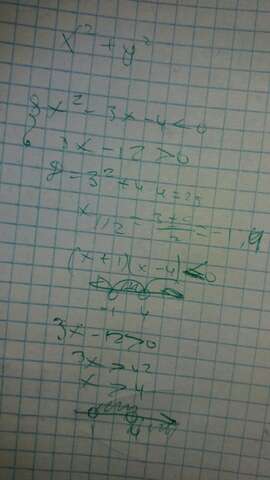 x² + y²
{ x² - 3x - 4 < 0
3x - 12 > 0
D = 3² + 4·4 = 25
x₁,₂ = (3±5)/2 = -1, 4
(x + 1)(x - 4) < 0
-1 4
3x - 12 > 0
3x > 12
x > 4